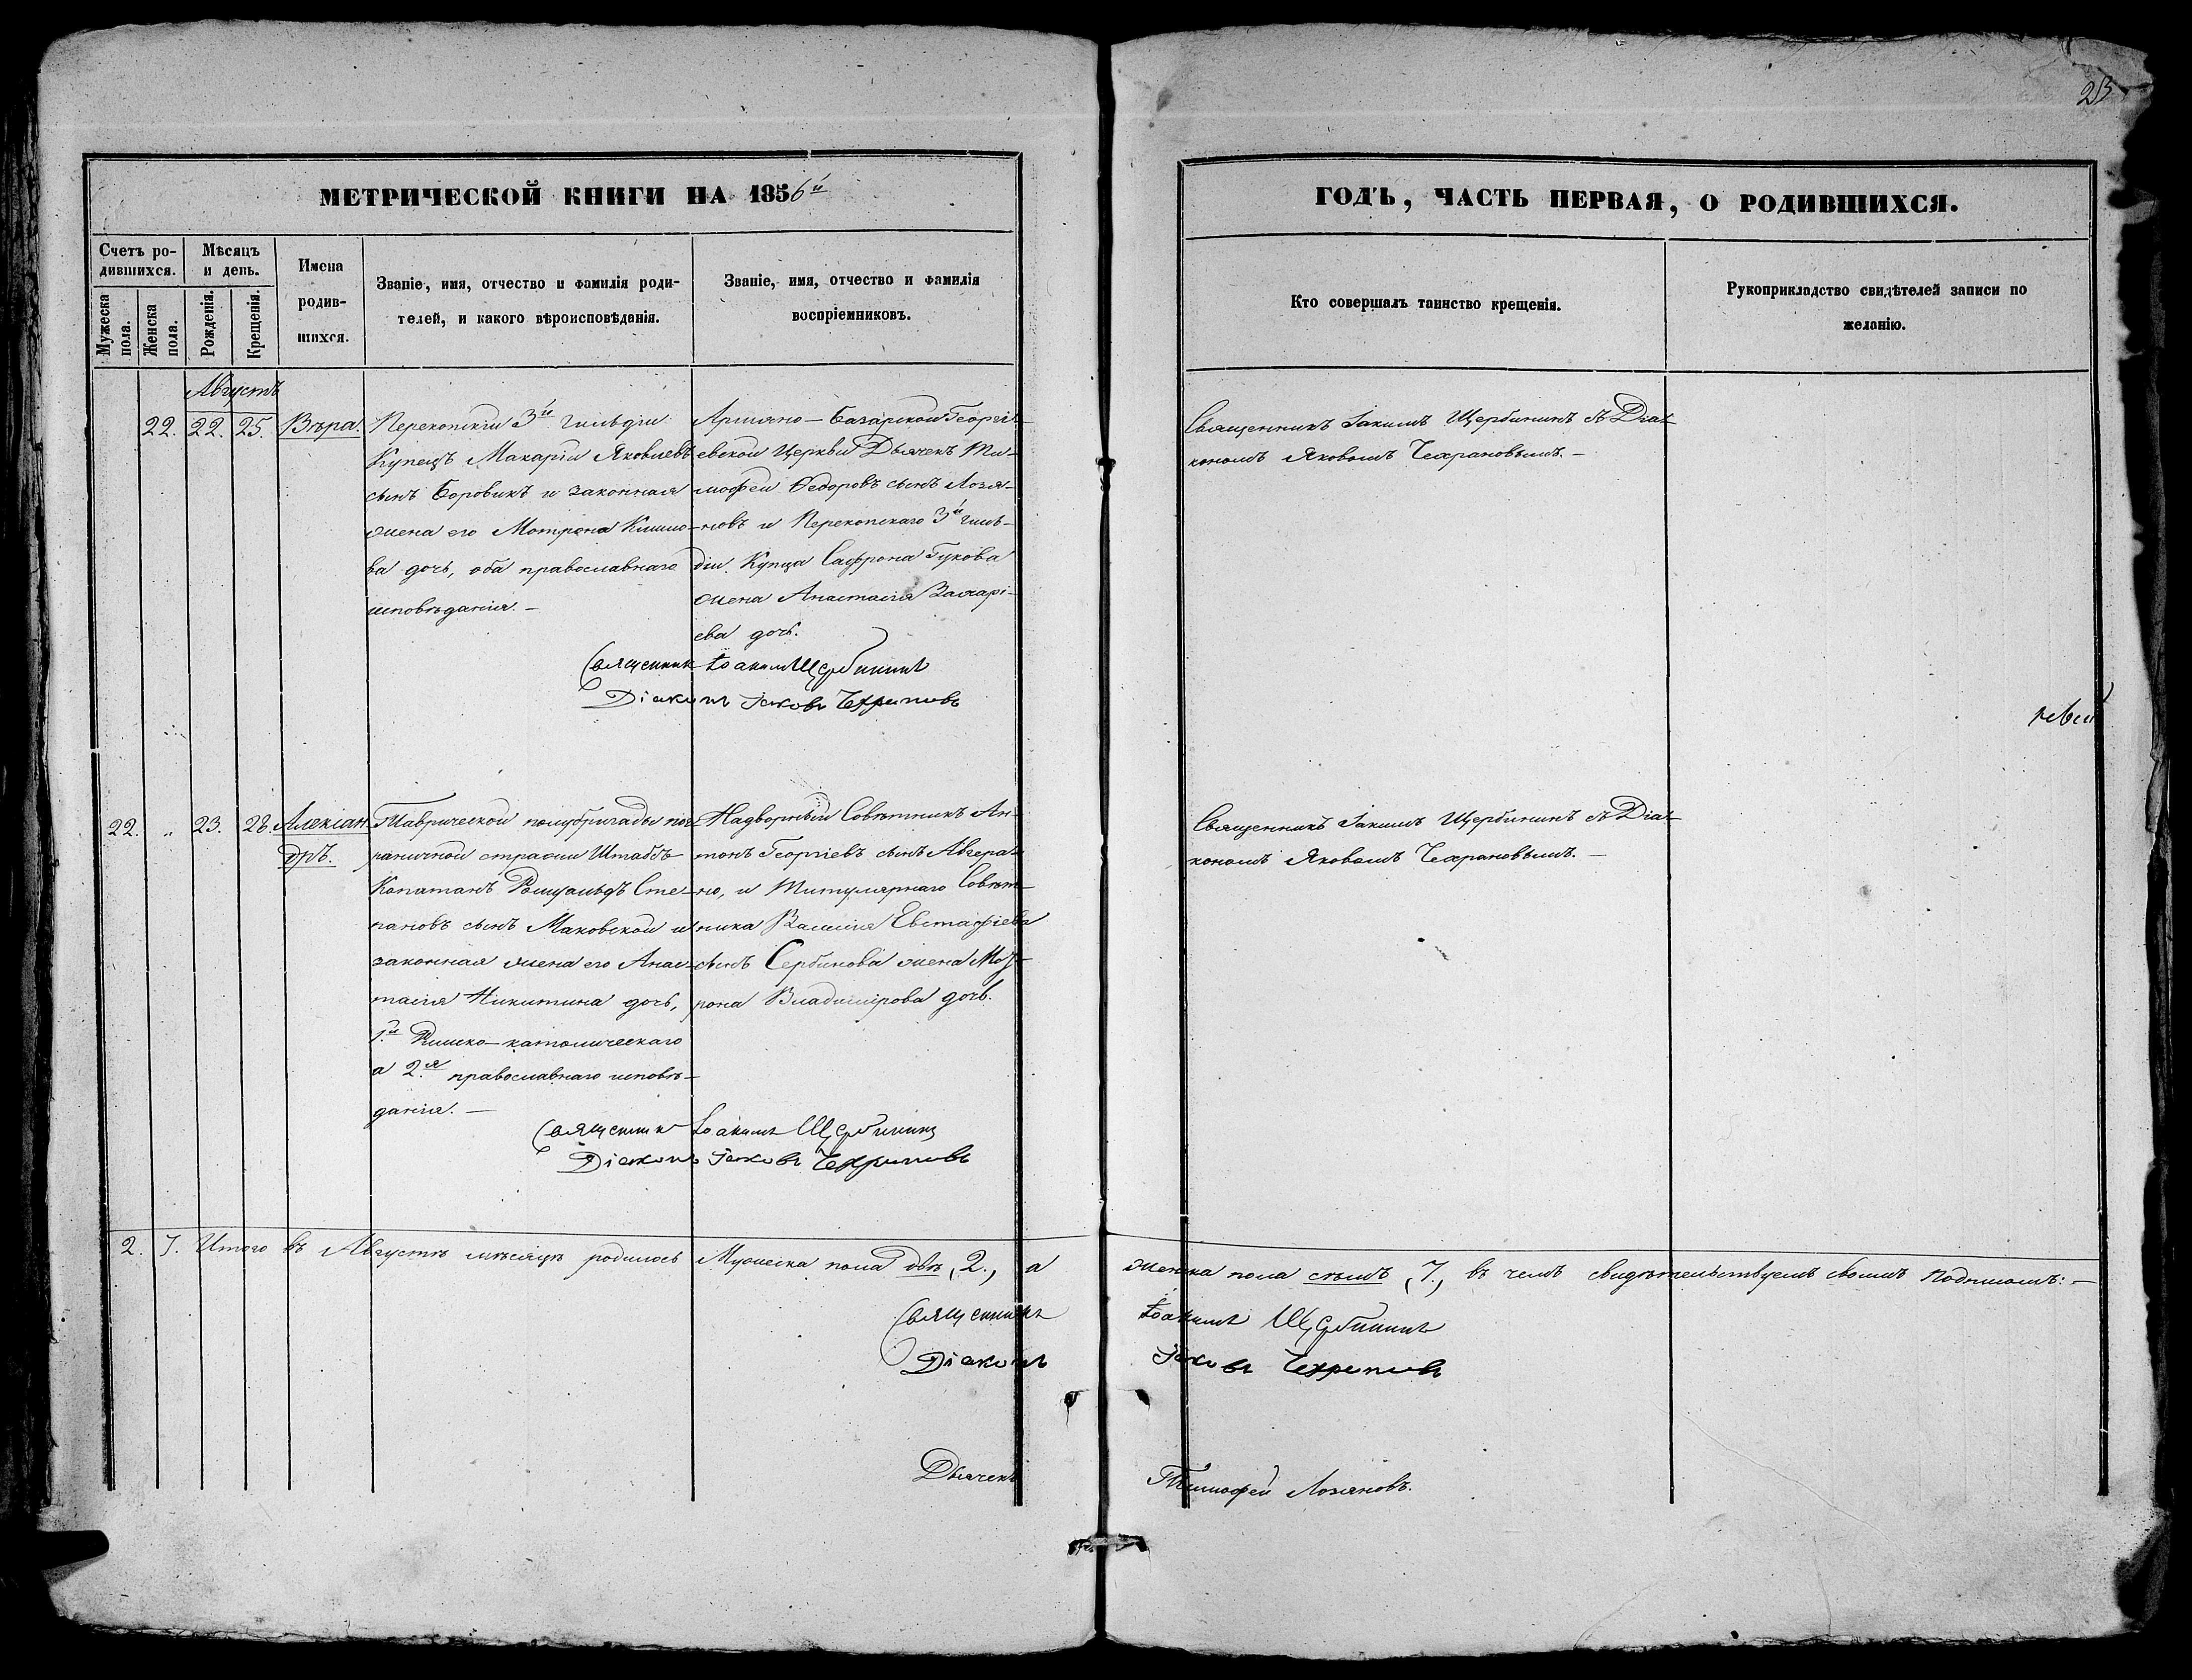 23
МЕТРИЧЕСКОЙ КНИГИ НА 1856й
ГОДЪ, ЧАСТЬ ПЕРВАЯ, О РОДИВШИХСЯ.
Счетъ ро-
дившихся.
Мужеска
пола.
Женска
пола.
Мѣсяцъ
и день.
Рожденія.
Крещенія.
Имена
родив-
шихся.
Званіе, имя, отчество и фамилія роди-
телей, и какого вѣроисповѣданія.
Званіе, имя, отчество и фамилія
воспріемниковъ.
Кто совершалъ таинство крещенія.
Рукоприкладство свидѣтелей записи по
желанію.
Августъ
22. 22. 25. Вѣра.
Перекопскій 3й гильдіи
Купецъ Макарій Яковлевъ
сынъ Боровикъ и законная
жена его Мотрона
ва дочь, оба православнаго
исповѣданія. —
Армяно-Базарской Георгі-
евской Церкви Дьячекъ Ти-
мофей Ѳедоровъ сынъ Лозя-
новъ и Перекопскаго 3й гиль-
діи Купца Сафрона Гукова
жена Анастасія Захарі-
ева дочь.
Священник Іоаким Щербинин
Діакон Іаков Чехранов
Священникъ Іакимъ Щербининъ съ Діа-
кономъ Яковомъ Чехрановымъ. —
22. „ 23. 28. Алексан-
дръ.
Таврической полубригады пог-
раничной стражи Штабсъ-
Капитанъ Ромуальдъ Сте-
пановъ сынъ Маковской и
законная жена его Анас-
тасія Никитина дочь,
1й Римско-католическаго
а 2я православнаго исповѣ-
данія. —
Надворный Совѣтникъ Ан-
тонъ Георгіевъ сынъ Авгера-
но, и Титулярнаго Совѣт-
ника Василія Евстафіева
сынъ Сербинова жена Мот-
рона Владимірова дочь.
Священник Іоаким Щербинин
Діакон Іаков Чехранов
Священникъ Іакимъ Щербининъ съ Діа-
кономъ Яковомъ Чехрановымъ. —
2. 7. Итого въ Августѣ мѣсяцѣ родилось Мужеска пола двѣ, (2.), а женска пола семъ (7.), въ чемъ свидѣтельствуемъ своимъ подписомъ: —
Священникъ Іоаким Щербинин
Діакон Іаков Чехранов
Дьячекъ Тимофей Лозяновъ.